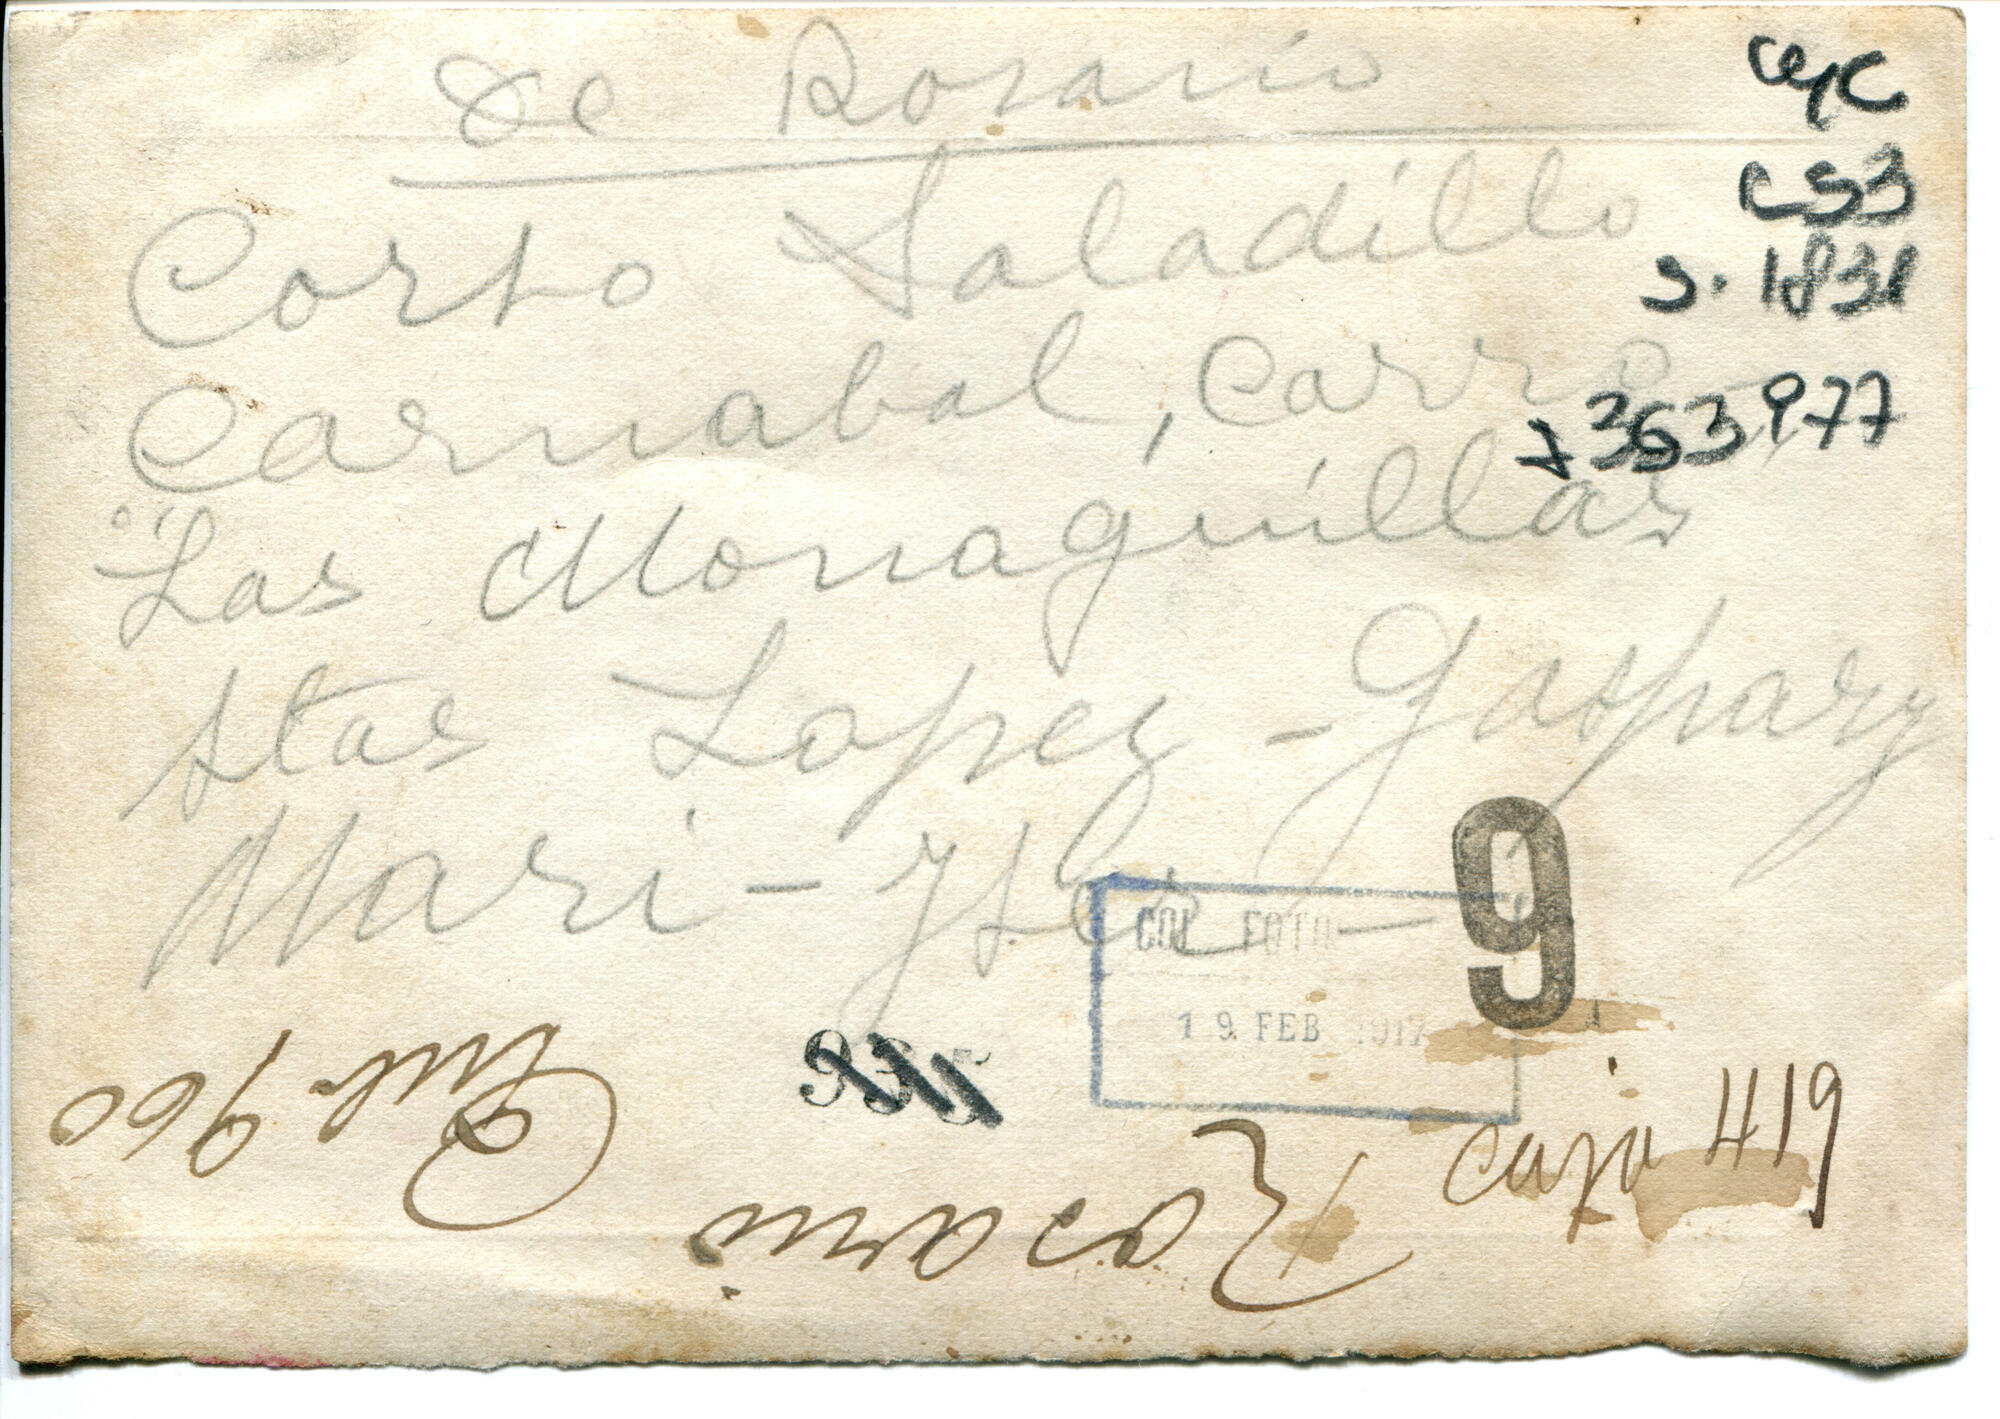 de Rosario
Corso Saladillo
Carnabal, Carro
"Las Monaguillas
Stas Lopez - Gaspary
Mari - Ysla -
C53
S. 1831
I 363977
COL FOTO
19 FEB 1917
9
caja 419
Rosario
Pub 960